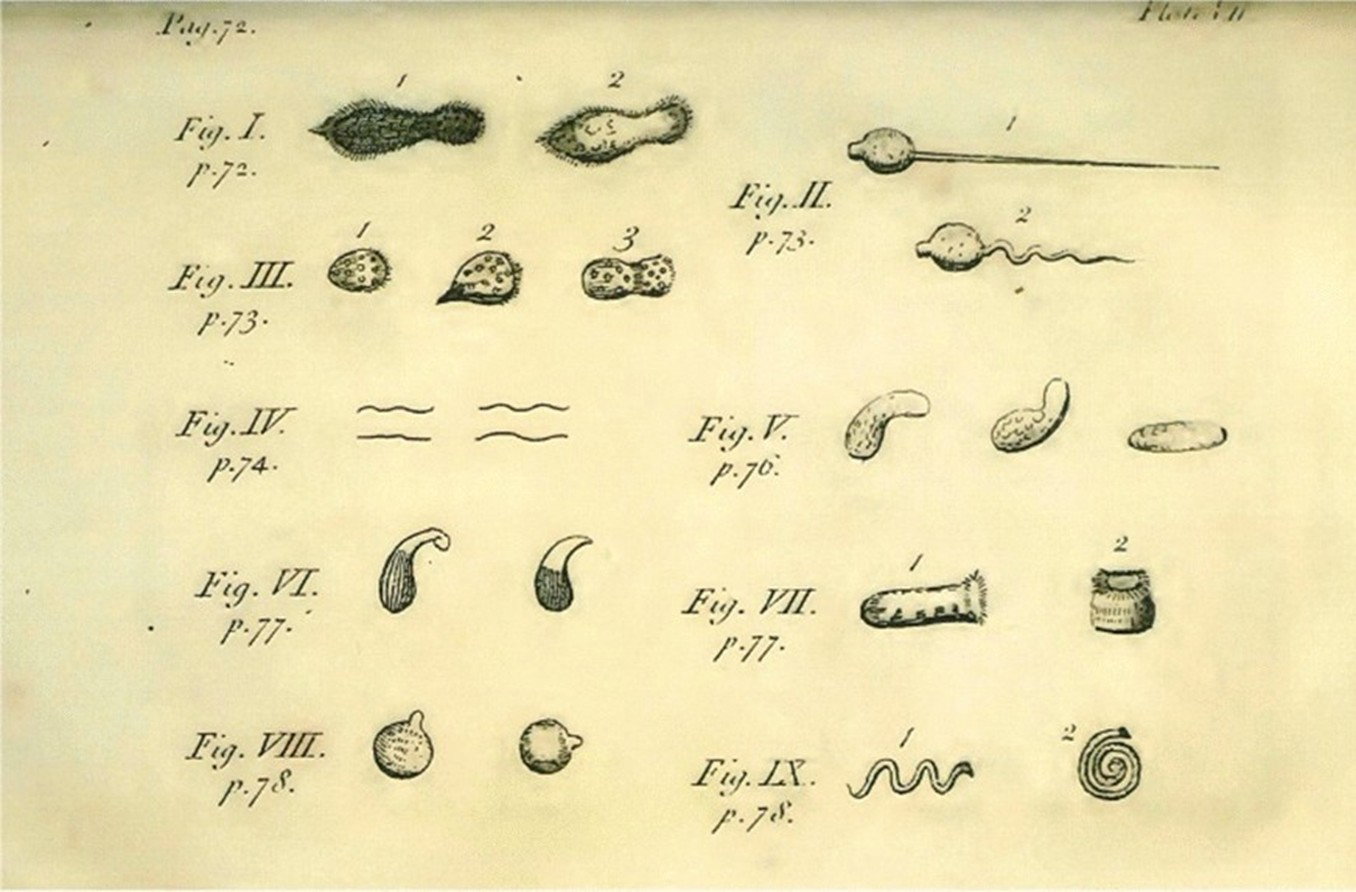 Pag. 72.
1 2
Fig. I.
p. 72.
1
Fig. II.
p. 73.
2
1 2 3
Fig. III.
p. 73.
Fig. IV.
p. 74.
Fig. V.
p. 76.
Fig. VI.
p. 77.
1 2
Fig. VII.
p. 77.
Fig. VIII.
p. 78.
1 2
Fig. IX.
p. 78.